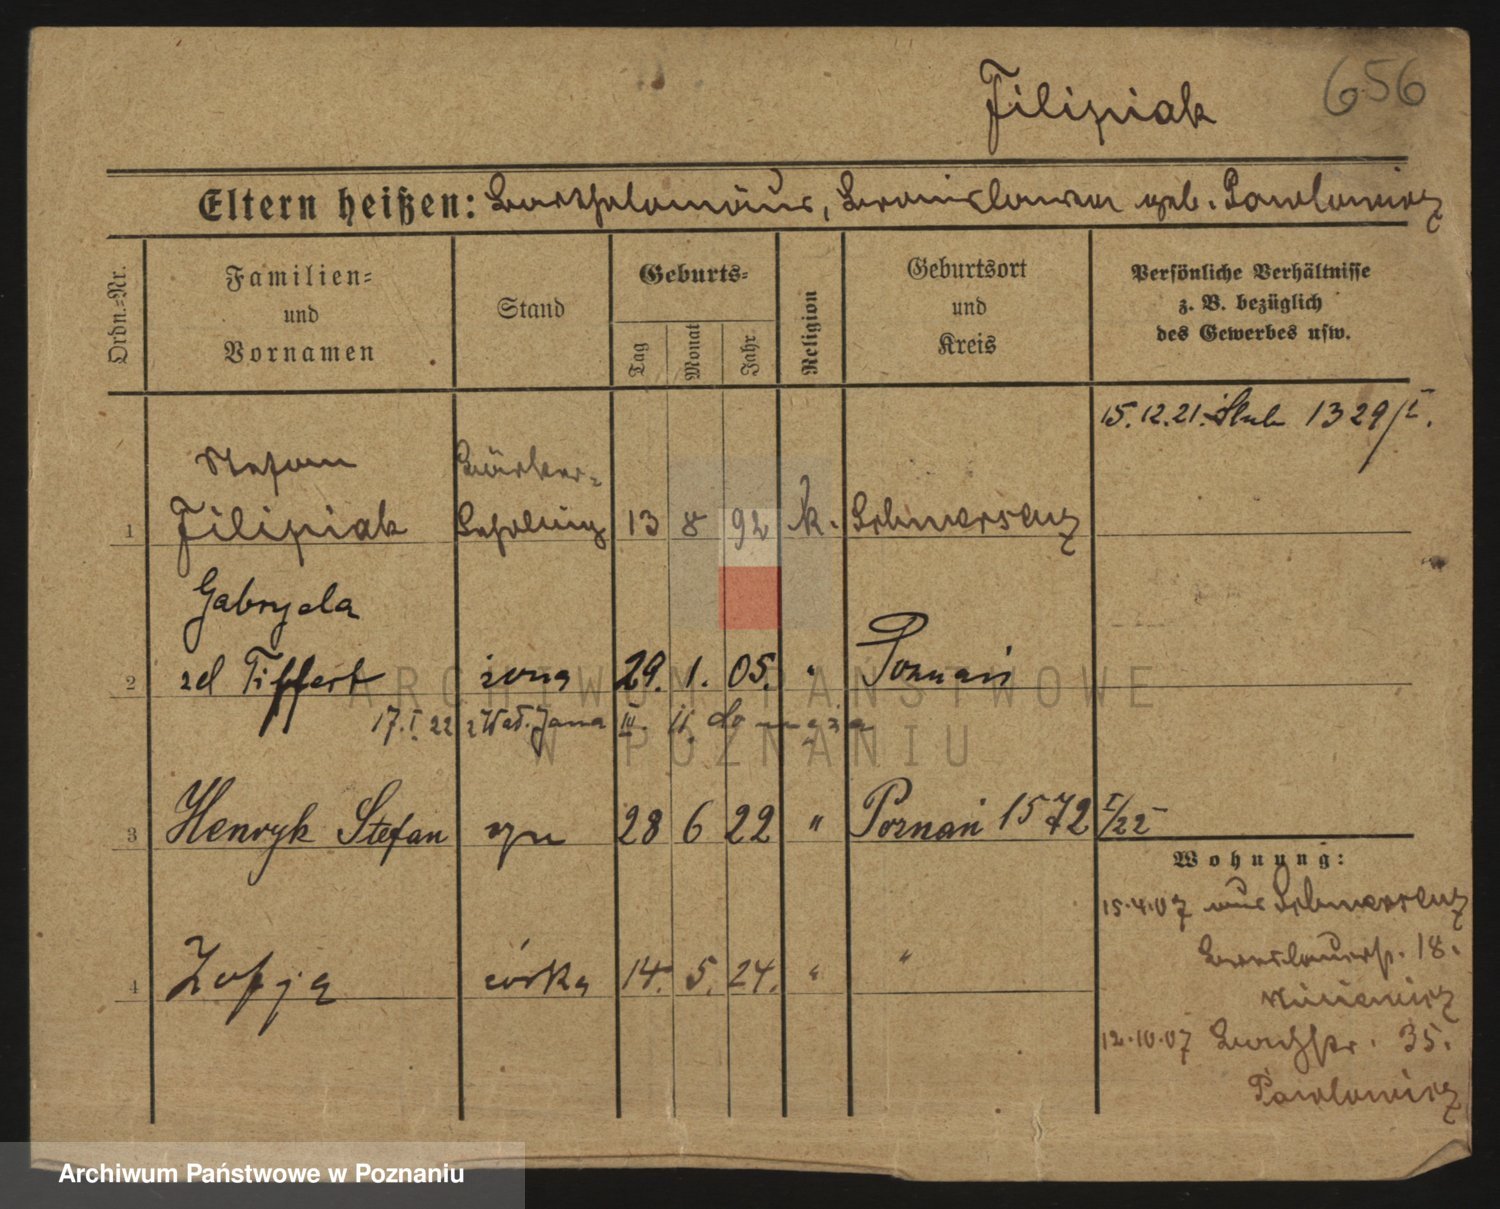 Filipiak 656
Eltern heißen: Bartholomäus, Bronislawa geb. Pawlowicz
Ordn.-Nr.
Familien-
und
Vornamen
Stand
Geburts-
Tag
Monat
Jahr
Religion
Geburtsort
und
Kreis
Persönliche Verhältnisse
z. B. bezüglich
des Gewerbes usw.
15.12.21. Slub 1329/I.
Stefan
1 Filipiak Lehrling 13 8 92 k. Schwersenz
Gabryela
2 zd Tiffert żona 29. 1. 05. " Poznań
17.I.22 z Wał. Jana III. 11. do męża
3 Henryk Stefan syn 28 6 22 " Poznań 1572 I/22
Wohnung:
15.4.07 aus Schwersenz
Breslauerstr. 18.
4 Zofja córka 14. 5. 24. " "
12.10.07 Bachstr. 35.
Pawlowicz
ARCHIWUM PAŃSTWOWE
W POZNANIU
Archiwum Państwowe w Poznaniu